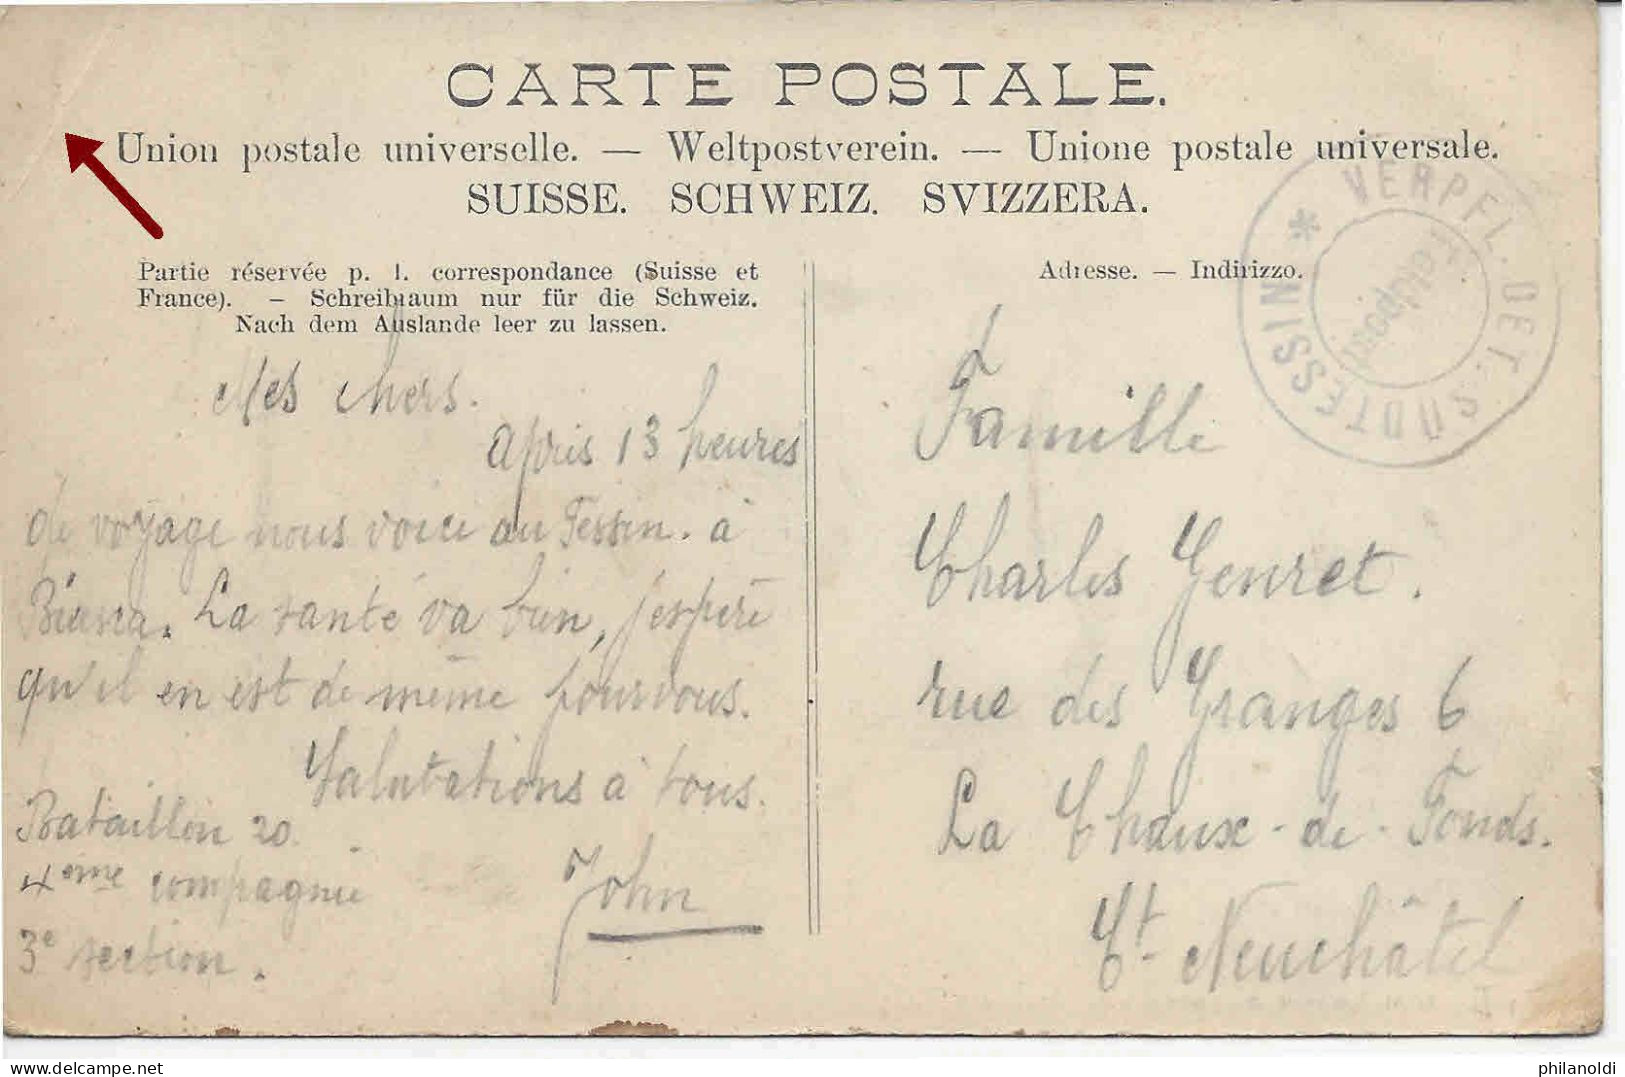 CARTE POSTALE.
Union postale universelle. — Weltpostverein. — Unione postale universale.
SUISSE. SCHWEIZ. SVIZZERA.
Partie réservée p. l. correspondance (Suisse et
France). – Schreibraum nur für die Schweiz.
Nach dem Auslande leer zu lassen.
Mes chers.
après 13 heures
de voyage nous voici au Tessin. à
La santé va bien, j'espère
qu'il en est de même pour vous.
Salutations à tous.
John
Bataillon 20.
4ème compagnie
3e section.
Adresse. — Indirizzo.
VERPFL. DET. SÜDTESSIN *
Feldpost
Famille
Charles Genret.
rue des Granges 6
La Chaux-de-Fonds.
Ct. Neuchâtel
philanoldi